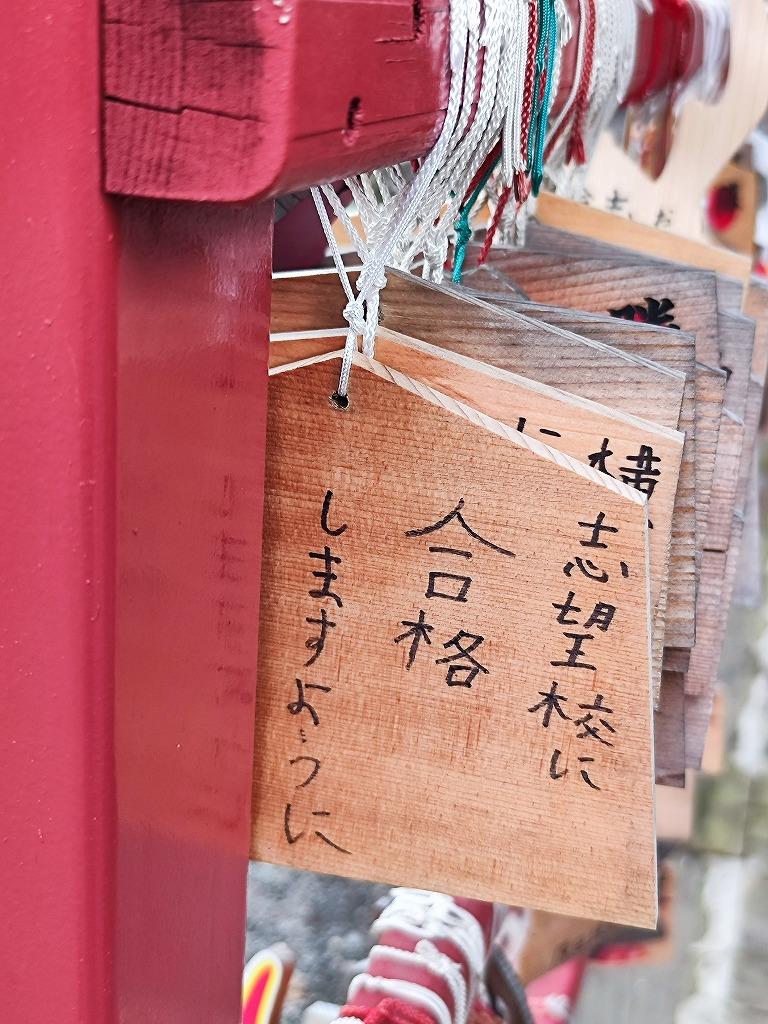 志望校に
合格
しますように
横
に
勝